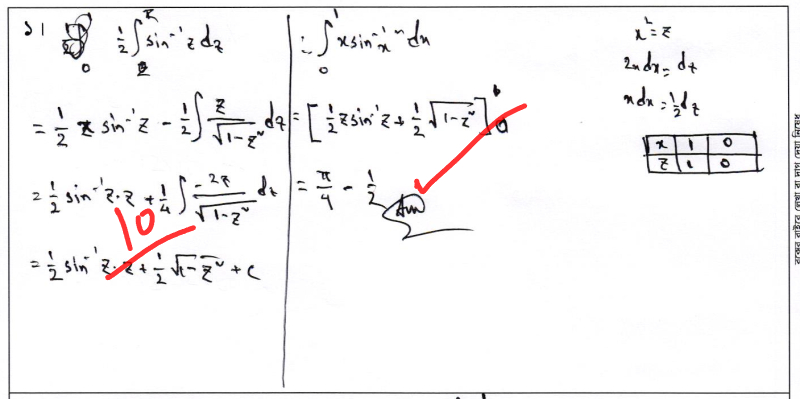 ১। 1/2 ∫ sin⁻¹ z dz
0
= 1/2 z sin⁻¹ z − 1/2 ∫ z/√(1−z²) dz
= 1/2 sin⁻¹ z · z + 1/4 ∫ −2z/√(1−z²) dz
10
= 1/2 sin⁻¹ z · z + 1/2 √(1−z²) + c
= ∫₀¹ x sin⁻¹ x² dx
= [1/2 z sin⁻¹ z + 1/2 √(1−z²)]₀¹
= π/4 − 1/2
Ans
x² = z
2x dx = dz
x dx = 1/2 dz
x 1 0
z 1 0
বক্সের বাইরে লেখা বা দাগ দেয়া নিষেধ